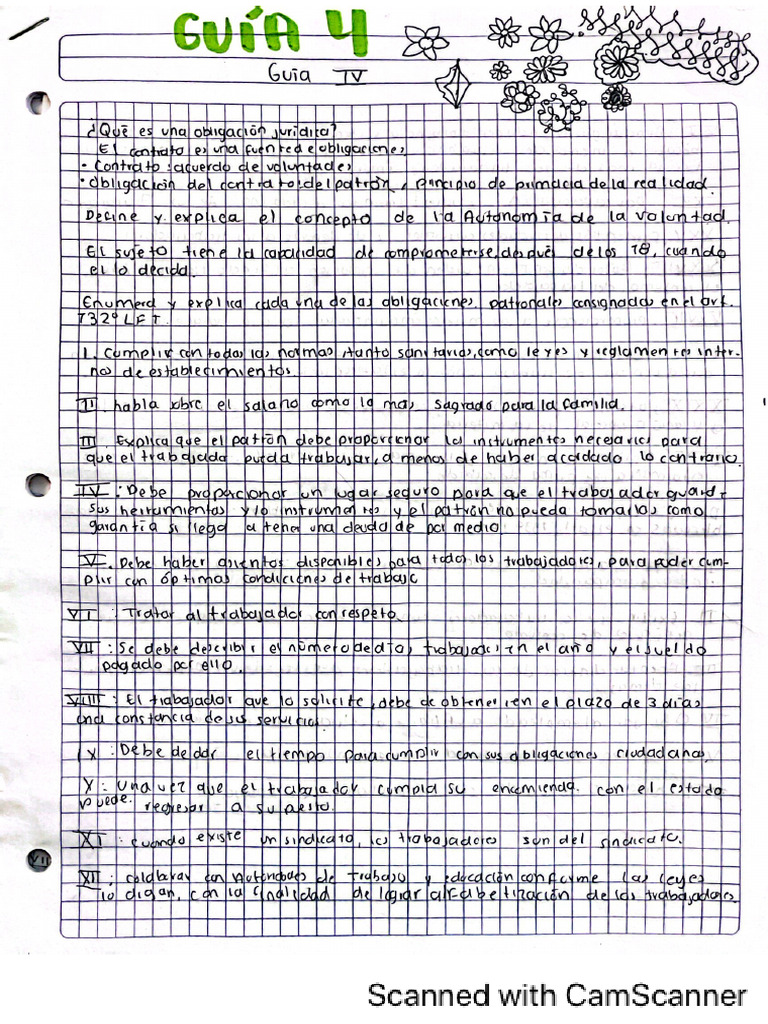 GUÍA 4
Guia IV
¿Qué es una obligación jurídica?
El contrato es una fuente de obligaciones
• Contrato: acuerdo de voluntades
• Obligación del contrato: del patrón, principio de primacia de la realidad.
Define y explica el concepto de la Autonomía de la voluntad.
El sujeto tiene la capacidad de comprometerse, después de los 18, cuando
el lo decida.
Enumera y explica cada una de las obligaciones patronales consignadas en el art.
132° LFT.
I. Cumplir con todas las normas, tanto sanitarias, como leyes y reglamentos inter-
nos de establecimientos.
II. habla sobre el salario como lo mas sagrado para la familia.
III. Explica que el patrón debe proporcionar los instrumentos necesarios para
que el trabajado pueda trabajar, a menos de haber acordado lo contrario.
IV: Debe proporcionar un lugar seguro para que el trabajador guarde
sus herramientas y/o instrumentos y el patrón no pueda tomarlos como
garantía si llega a tener una deuda de por medio
V. Debe haber asientos disponibles para todos los trabajadores, para poder cum-
plir con óptimas condiciones de trabajo
VI: Tratar al trabajador con respeto
VII: Se debe describir el número de días trabajados en el año y el sueldo
pagado por ello.
VIII: El trabajador que lo solicite, debe de obtener en el plazo de 3 días
una constancia de sus servicios.
IX: Debe de dar el tiempo para cumplir con sus obligaciones ciudadanas.
X: Una vez que el trabajador cumpla su encomienda con el estado
puede regresar a su puesto.
XI: cuando existe un sindicato, los trabajadores son del sindicato.
XII: colaborar con Autoridades de Trabajo y educación conforme las leyes
lo digan, con la finalidad de lograr alfabetización de los trabajadores
VII
Scanned with CamScanner